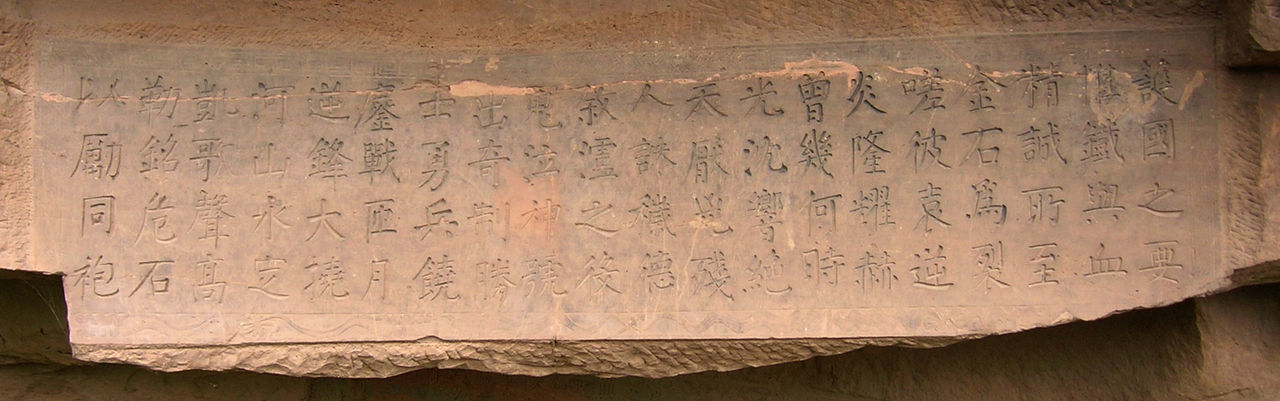 護國之要
惟鐵與血
精誠所至
金石爲裂
嗟彼袁逆
炎隆耀赫
曾幾何時
光沈響絶
天厭兇殘
人誅穢德
敘瀘之役
鬼泣神號
出奇制勝
士勇兵饒
鏖戰匝月
逆鋒大撓
河山永定
凱歌聲高
勒銘危石
以勵同袍